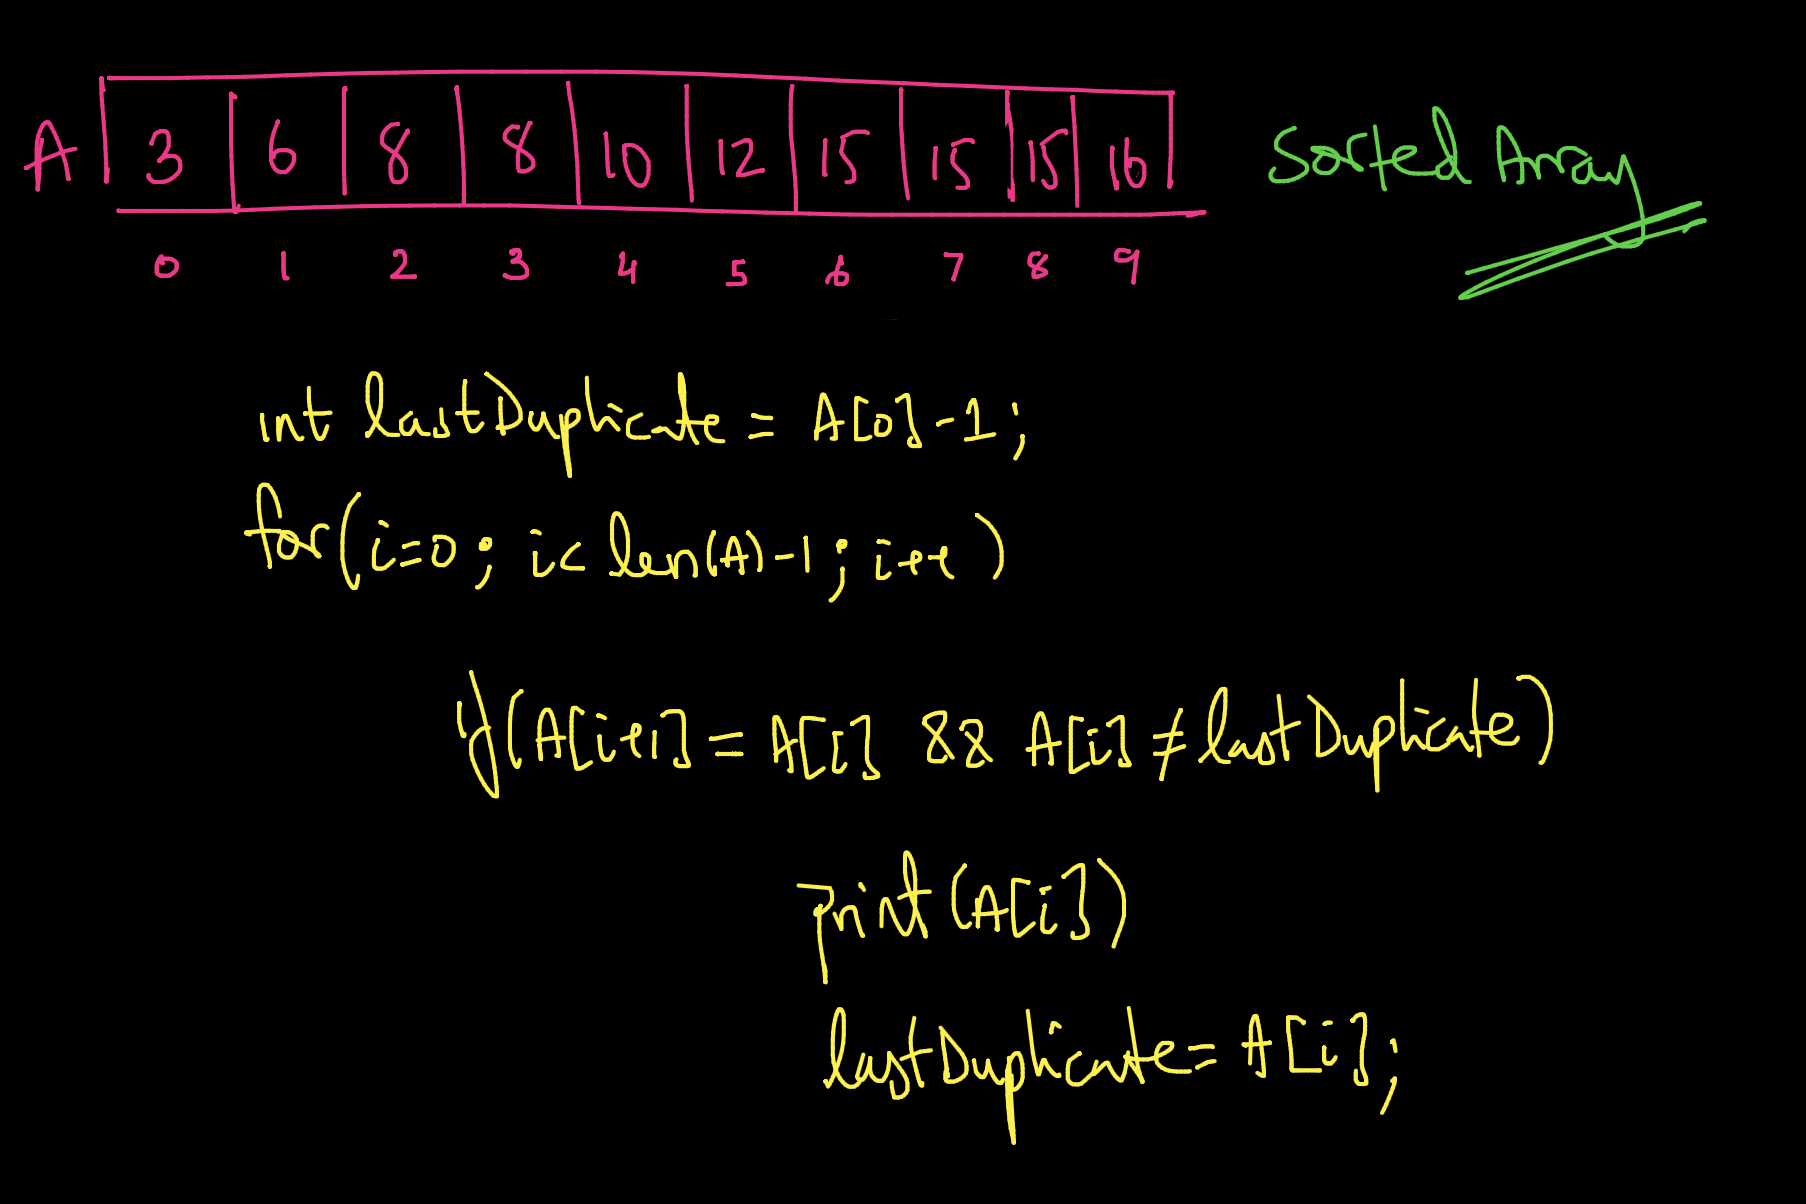 A 3 6 8 8 10 12 15 15 15 16 Sorted Array
0 1 2 3 4 5 6 7 8 9
int lastDuplicate = A[0]-1;
for(i=0; i< len(A)-1; i++)
if(A[i+1] = A[i] && A[i] ≠ lastDuplicate)
print(A[i])
lastDuplicate = A[i];